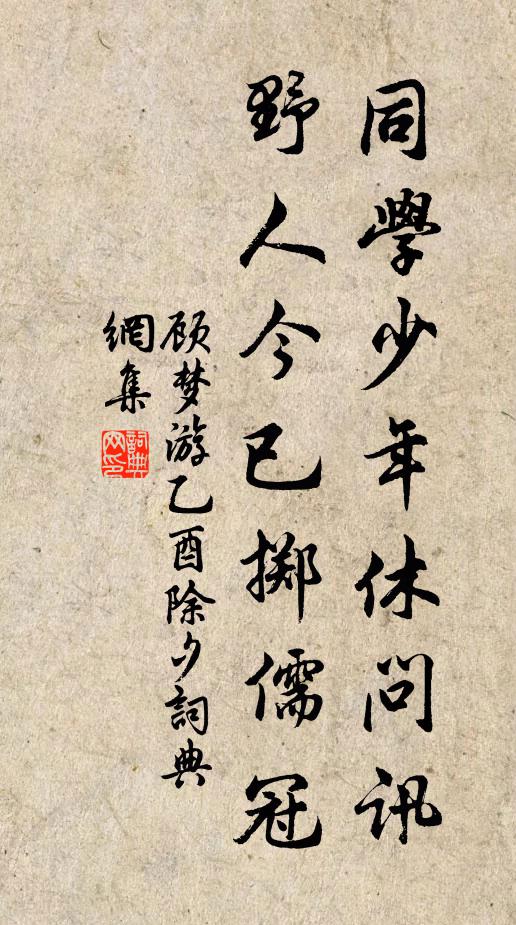 同學少年休問訊
野人今已擲儒冠
顾梦游乙酉除夕詞典
網集
詞典網印